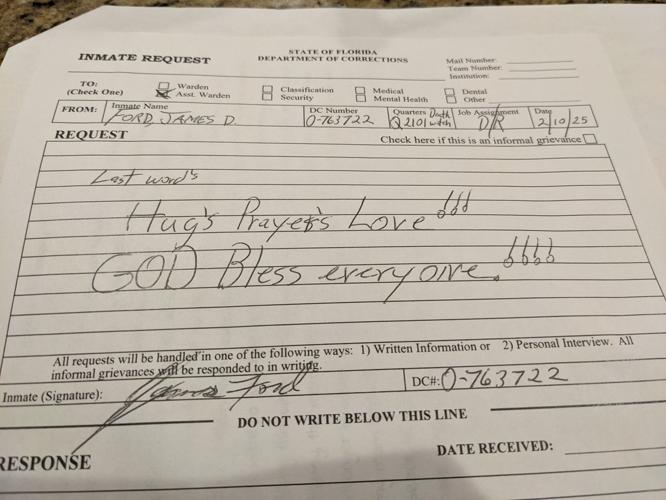 INMATE REQUEST
STATE OF FLORIDA
DEPARTMENT OF CORRECTIONS
Mail Number:
Team Number:
Institution:
TO:
(Check One)
Warden
Asst. Warden
Classification
Security
Medical
Mental Health
Dental
Other
FROM:
Inmate Name
FORD, JAMES D.
DC Number
O-763722
Quarters
Q2101
Death
watch
Job Assignment
D/R
Date
2/10/25
REQUEST
Check here if this is an informal grievance
Last word's
Hug's Prayer's Love !!!
GOD Bless everyone. !!!!
All requests will be handled in one of the following ways: 1) Written Information or 2) Personal Interview. All
informal grievances will be responded to in writing.
Inmate (Signature):
James Ford
DC#:
O-763722
DO NOT WRITE BELOW THIS LINE
RESPONSE
DATE RECEIVED: